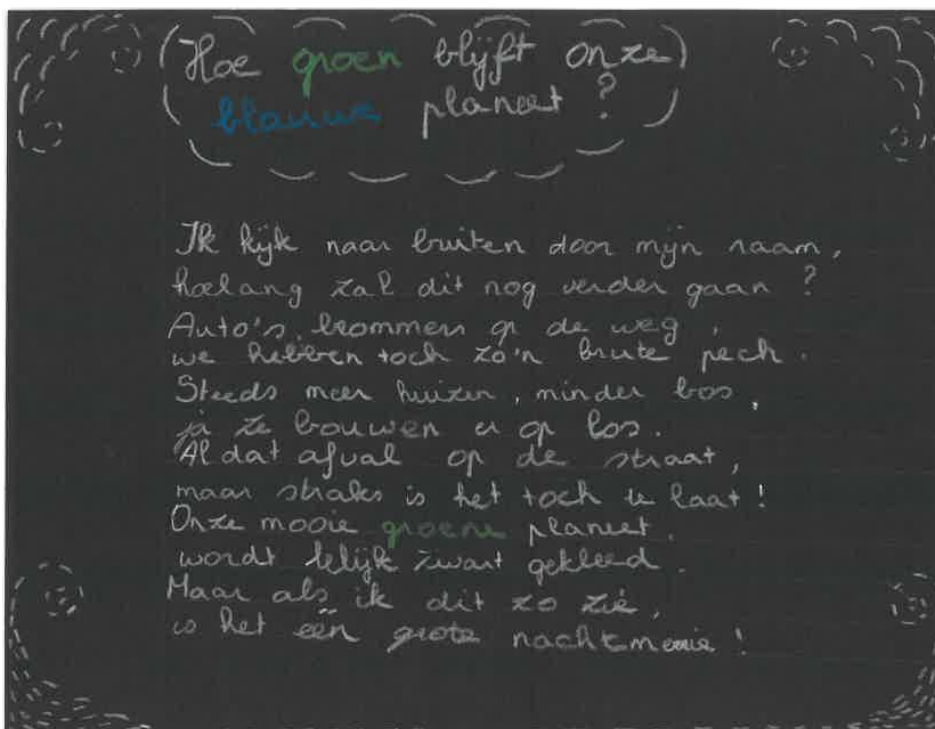 Hoe groen blijft onze
blauwe planeet ?
Ik kijk naar buiten door mijn raam,
hoelang zal dit nog verder gaan ?
Auto's brommen op de weg,
we hebben toch zo'n brute pech.
Steeds meer huizen, minder bos,
ja ze bouwen er op los.
Al dat afval op de straat,
maar straks is het toch te laat !
Onze mooie groene planeet.
wordt lelijk zwart gekleed.
Maar als ik dit zo zie,
is het één grote nachtmerrie !